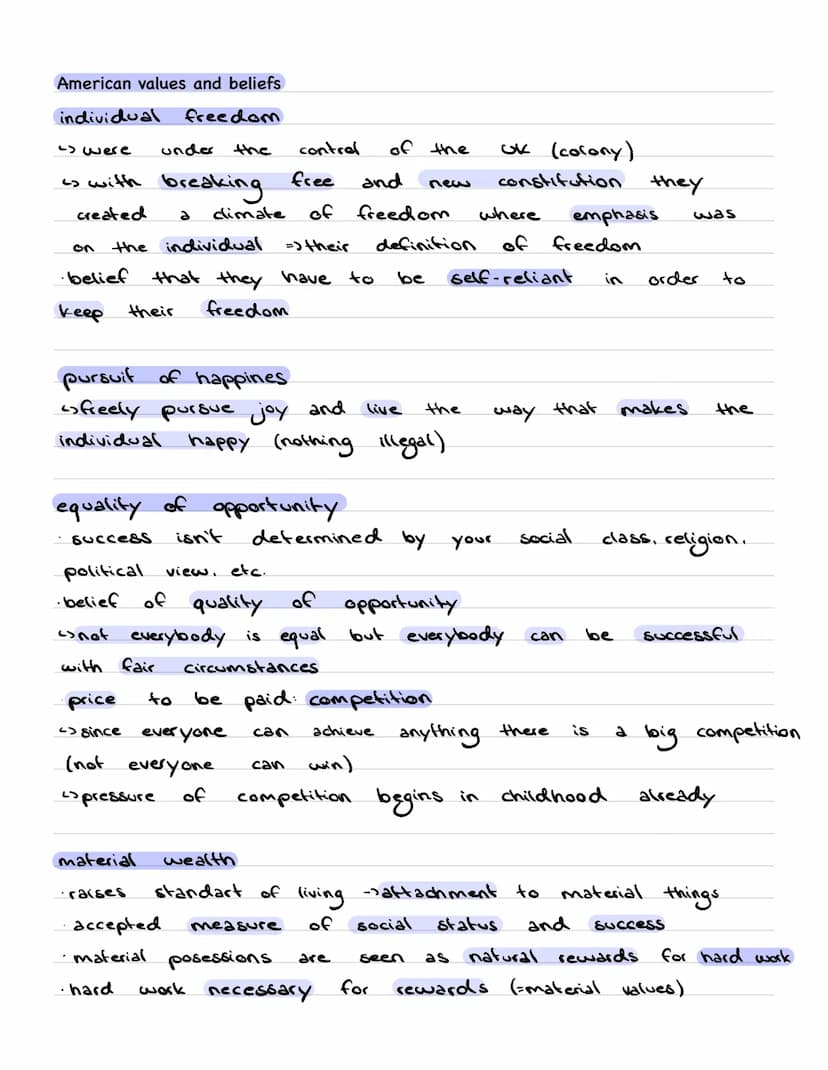 American values and beliefs
individual freedom
↳ were under the control of the UK (colony)
↳ with breaking free and new constitution they
created a climate of freedom where emphasis was
on the individual => their definition of freedom
· belief that they have to be self-reliant in order to
keep their freedom
pursuit of happines
↳ freely pursue joy and live the way that makes the
individual happy (nothing illegal)
equality of opportunity
· success isn't determined by your social class, religion,
political view, etc.
· belief of quality of opportunity
↳ not everybody is equal but everybody can be successful
with fair circumstances
· price to be paid: competition
↳ since everyone can achieve anything there is a big competition
(not everyone can win)
↳ pressure of competition begins in childhood already
material wealth
· raises standart of living -> attachment to material things
· accepted measure of social status and success
· material posessions are seen as natural rewards for hard work
· hard work necessary for rewards (=material values)